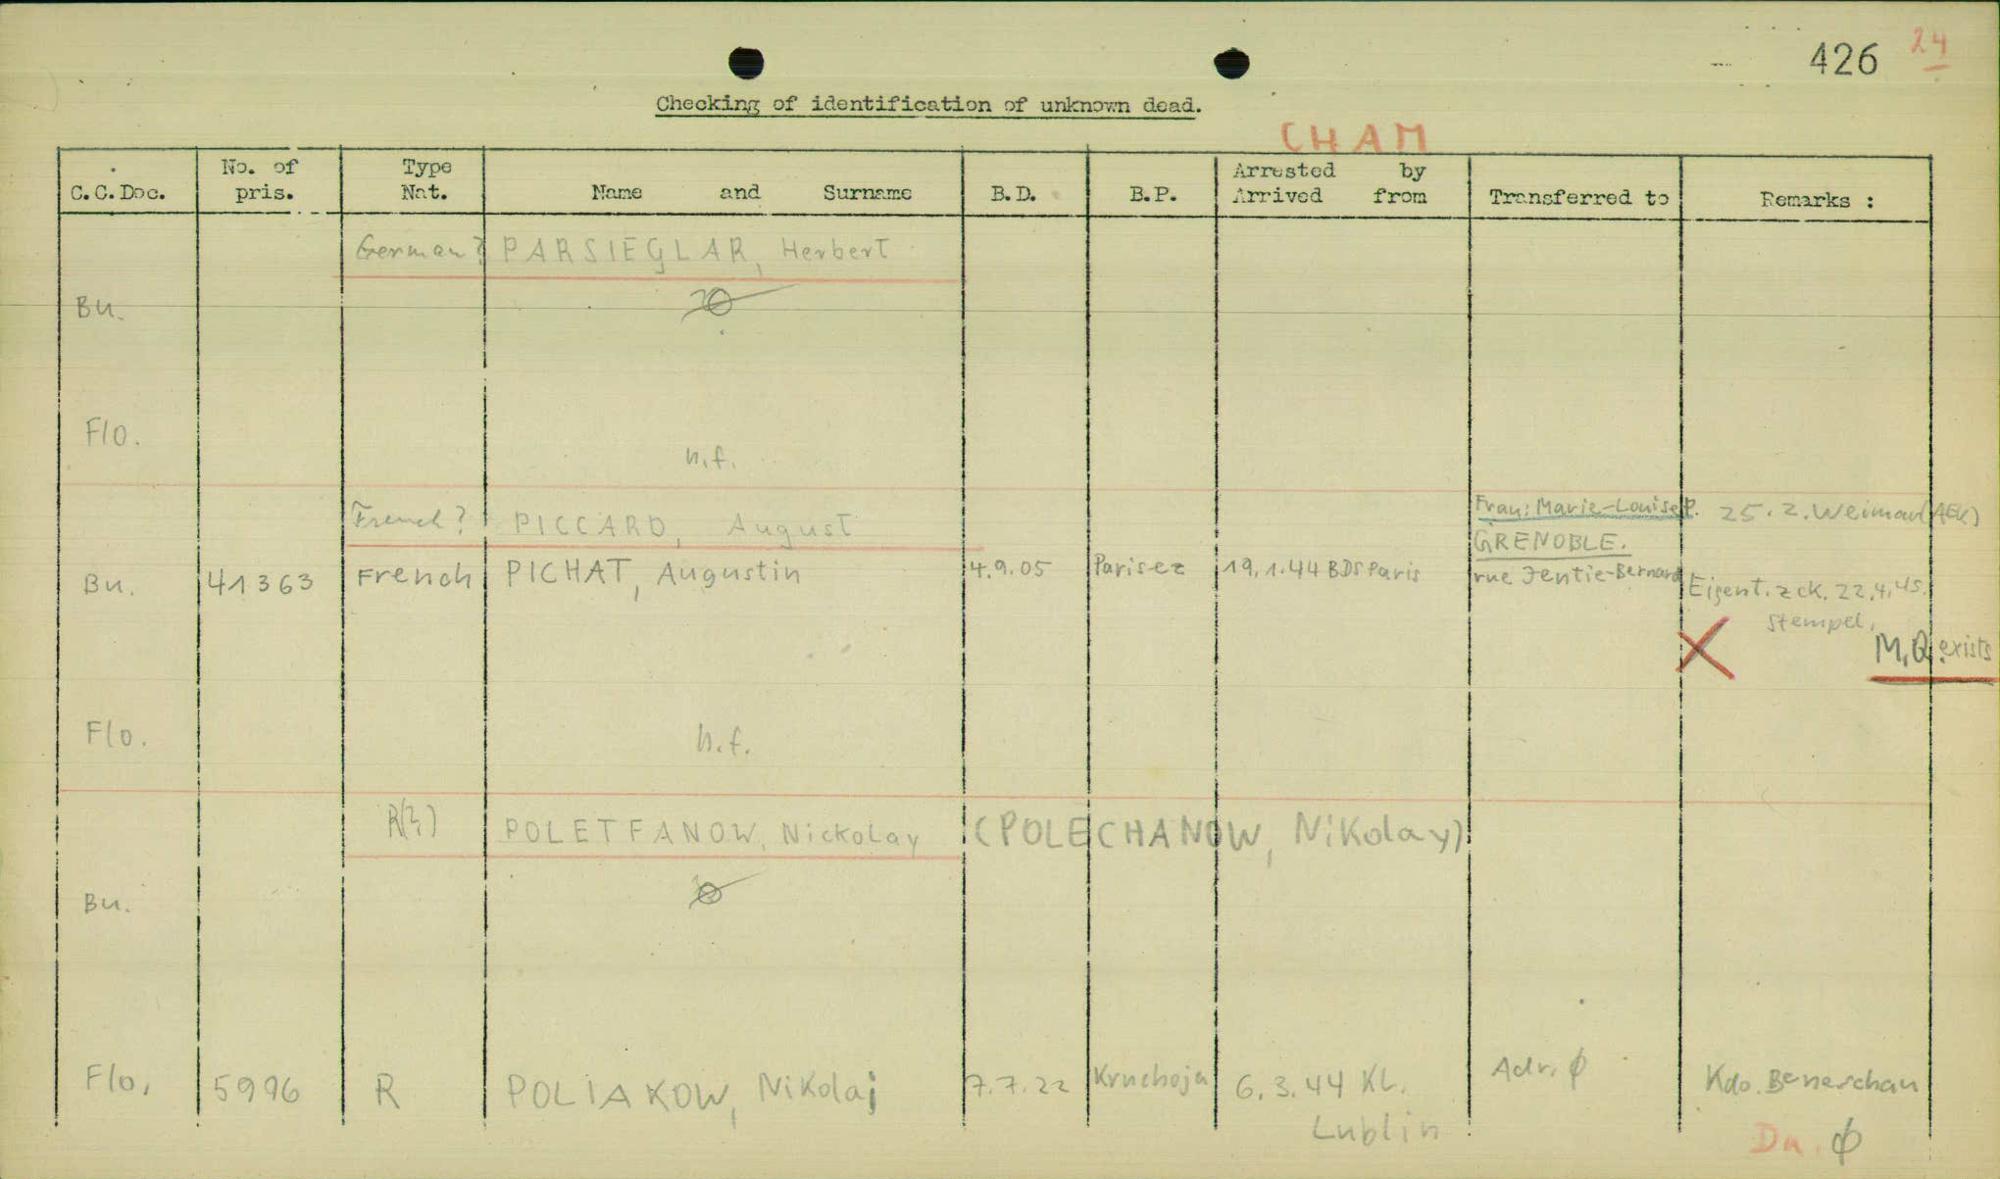 426 24
Checking of identification of unknown dead.
CHAM
C.C.Doc. No. of pris. Type Nat. Name and Surname B.D. B.P. Arrested by Arrived from Transferred to Remarks :
German? PARSIEGLAR, Herbert
Bu.
Flo.
n.f.
French? PICCARD, August Frau: Marie-Louise P. 25.2. Weimar (AEK)
GRENOBLE.
Bu. 41363 French PICHAT, Augustin 4.9.05 Parisez 19.1.44 BDS Paris rue Jentie-Bernard Eigent. zck. 22.4.45.
Stempel.
M.Q. exists
Flo. n.f.
R(?) POLETFANOW, Nickolay (POLECHANOW, Nikolay)
Bu.
Flo. 5996 R POLIAKOW, Nikolaj 7.7.22 Kruchoja 6.3.44 KL. Adr. Ø Kdo. Beneschau
Lublin Da. Ø